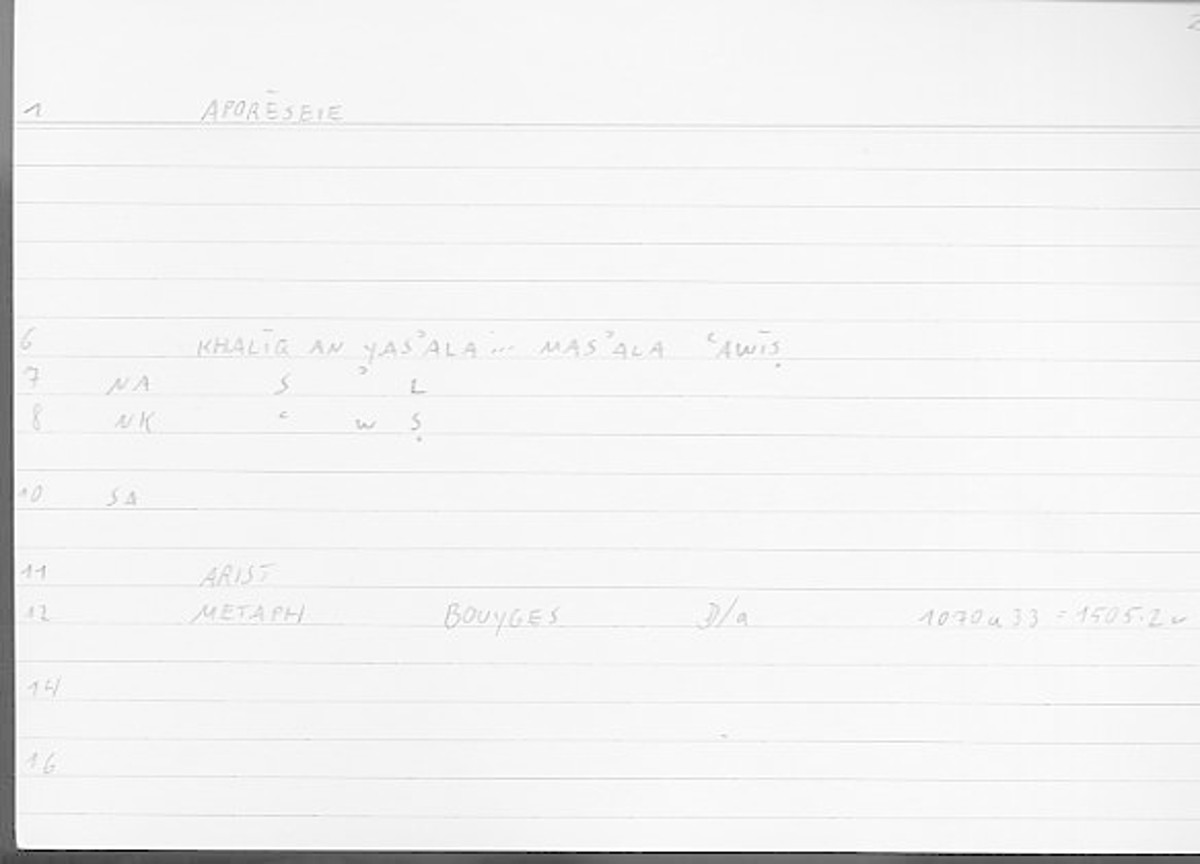 1 APORĒSEIE
6 KHALĪQ AN YASʾALA ... MASʾALA ʿAWĪṢ
7 NA S ʾ L
8 NK ʿ W Ṣ
10 SA
11 ARIST
12 METAPH BOUYGES D/a 1070a33 = 1505.2
14
16